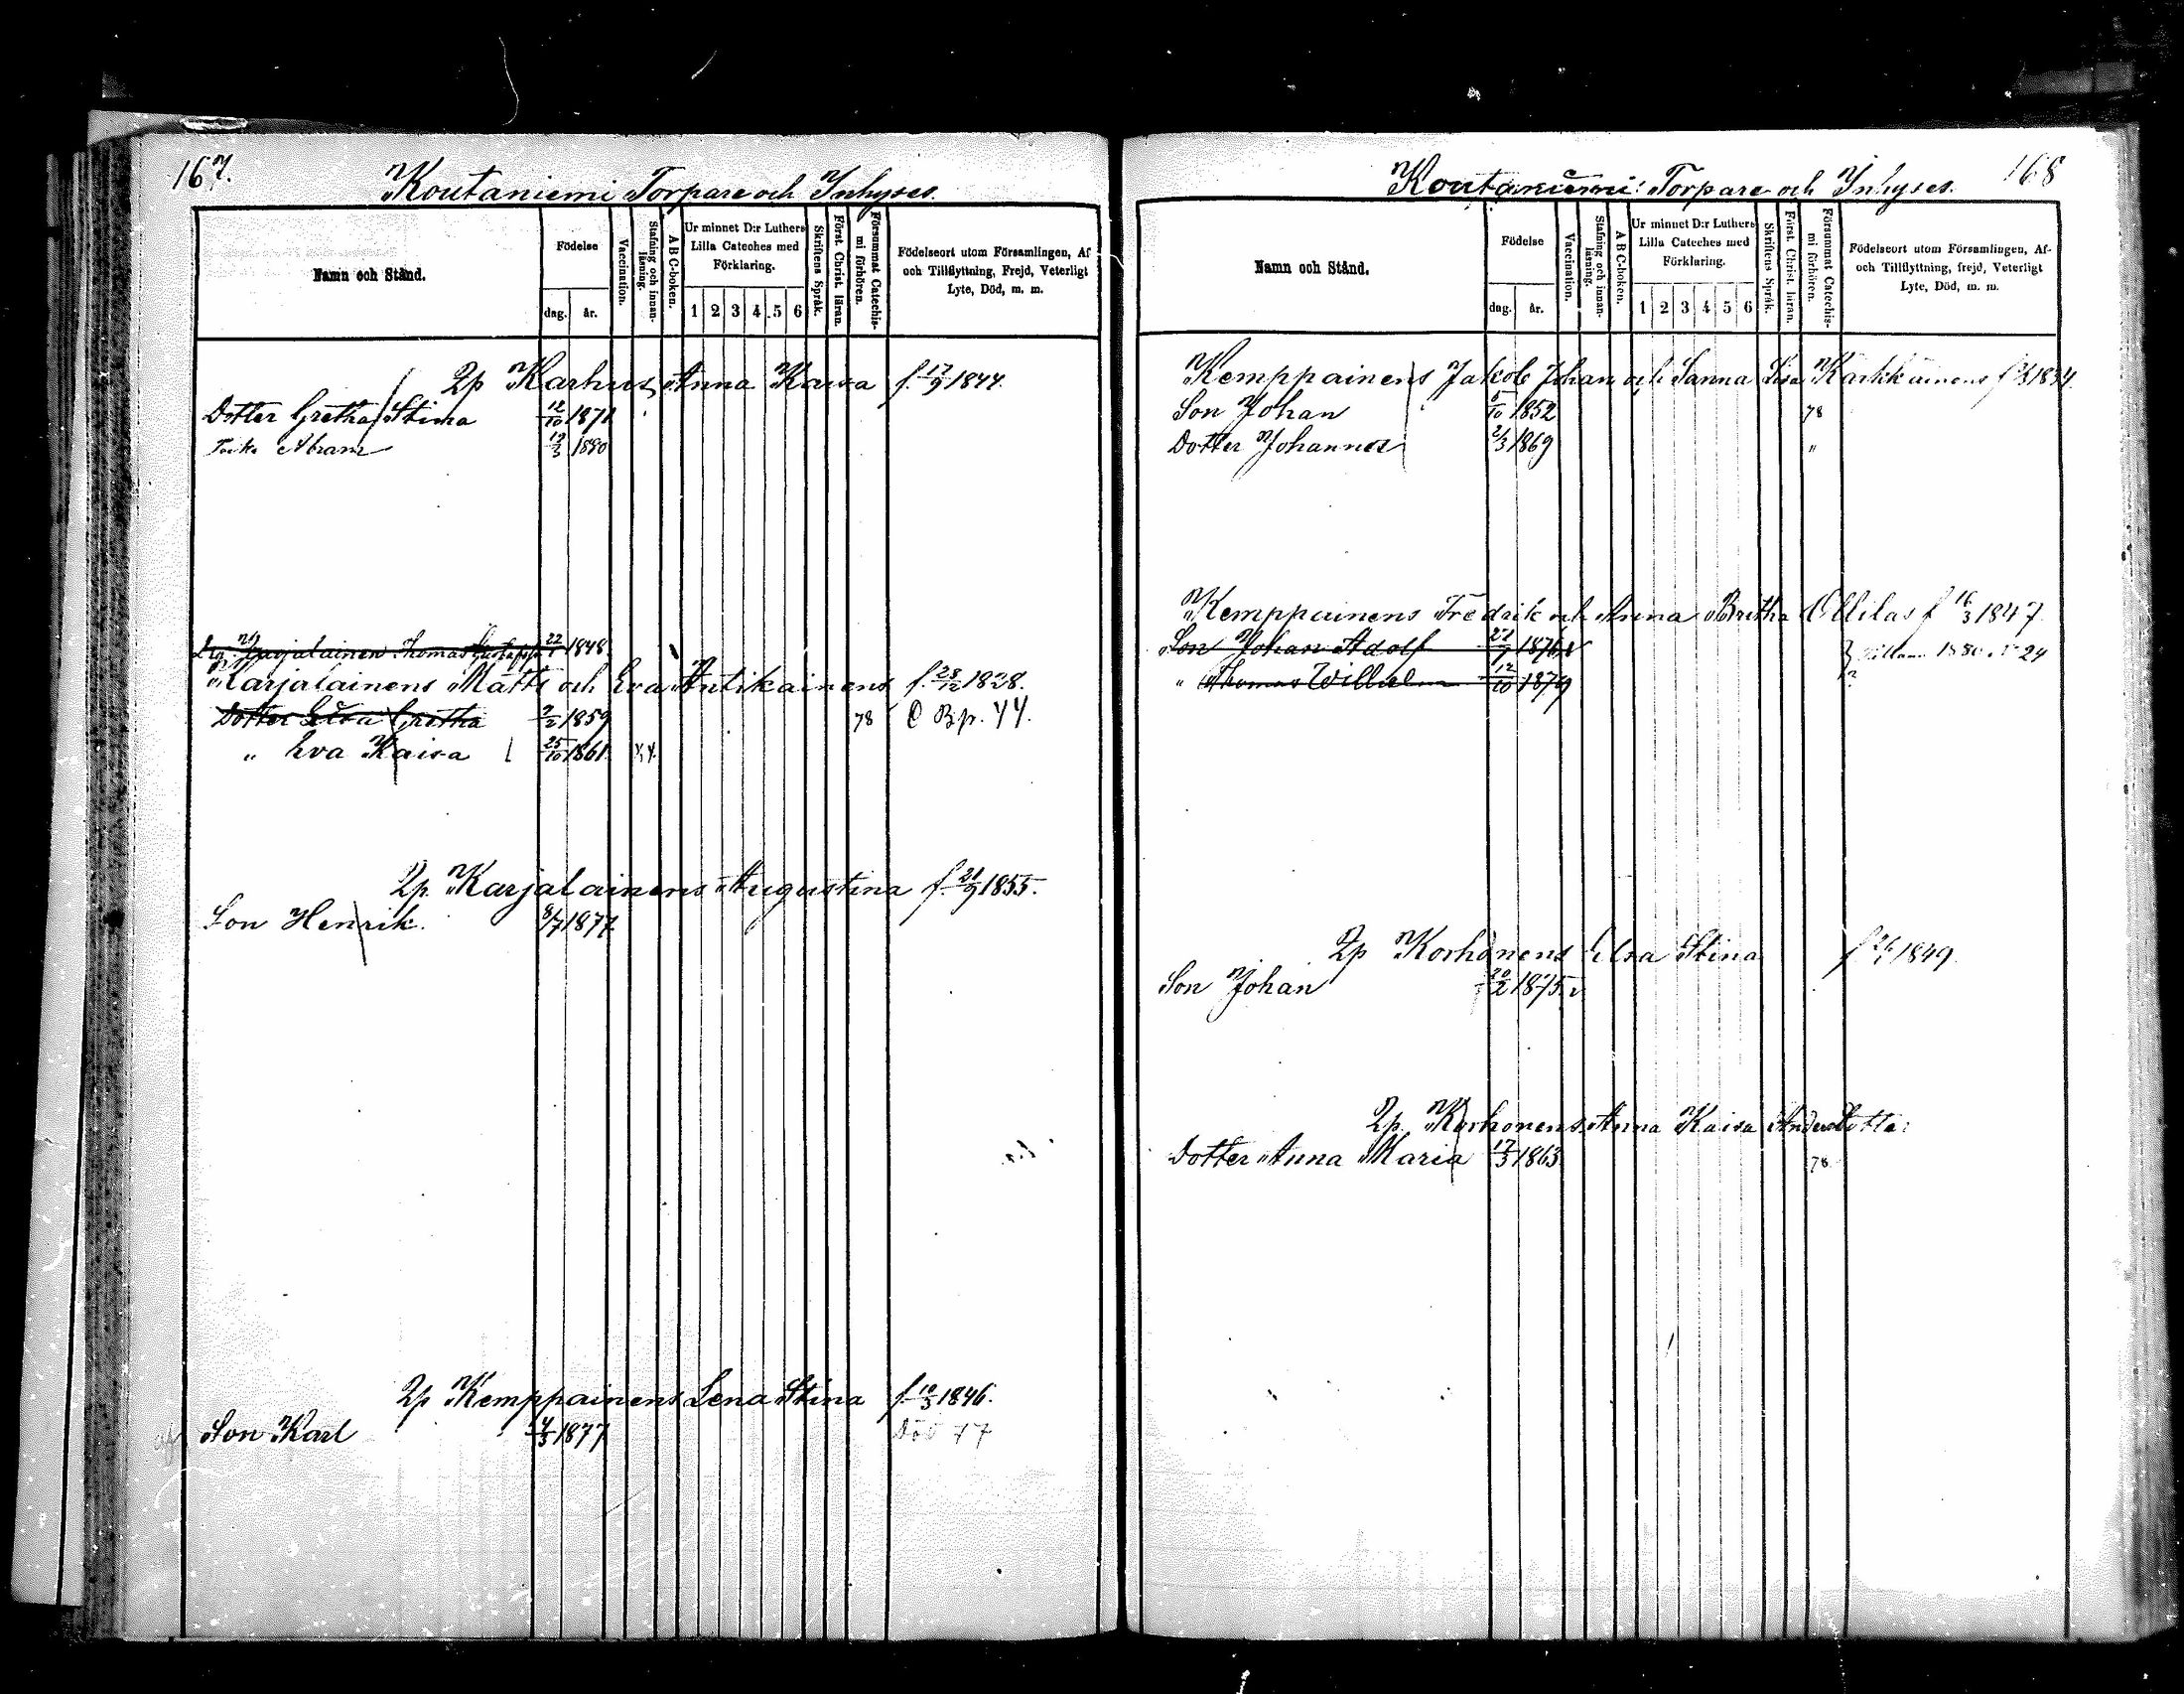 167.
Koutaniemi Torpare och Inhyses.
Namn och Stånd.
Födelse
dag. år.
Vaccination.
Stafning och innan-läsning.
A B C-boken.
Ur minnet D:r Luthers Lilla Cateches med Förklaring.
1 2 3 4 5 6
Skriftens Språk.
Först. Christ. läran.
Försummat Catechis-mi förhören.
Födelseort utom Församlingen, Af och Tillflyttning, Frejd, Veterligt Lyte, Död, m. m.
Qp Karhus Anna Kaisa f. 17/9 1844.
Dotter Gretha Stina 12/10 1871
Abram 19/3 1880
Karjalainen Thomas 1848
Karjalainens Matts och Eva Antikainens f. 28/12 1828.
Dotter Gretha 1859 78 Bp. 44.
" Eva Kaisa 25/10 1861
Qp. Karjalainens Augustina f. 21/9 1855.
Son Henrik. 8/7 1877
Qp Kemppainens Lena Stina f. 10/3 1846.
Son Karl 4/3 1877 Död 77
168
Koutaniemi Torpare och Inhyses.
Namn och Stånd.
Födelse
dag. år.
Vaccination.
Stafning och innan-läsning.
A B C-boken.
Ur minnet D:r Luthers Lilla Cateches med Förklaring.
1 2 3 4 5 6
Skriftens Språk.
Först. Christ. läran.
Försummat Catechis-mi förhören.
Födelseort utom Församlingen, Af- och Tillflyttning, frejd, Veterligt Lyte, Död, m. m.
Kemppainens Jakob Johan och Sanna Lisa Karkkainens
Son Johan 5/10 1852 78
Dotter Johanna 2/3 1869 "
Kemppainens Fredrik och Anna Britha Ollilas f 16/3 1847
Son Johan Adolf 1876
" Thomas Wilhelm 12/10 1879
1880 24
Qp Korhonens Elsa Stina 1849.
Son Johan 20/2 1875
Qp. Korhonens Anna Kaisa Andersdotter
Dotter Anna Maria 17/3 1863 78